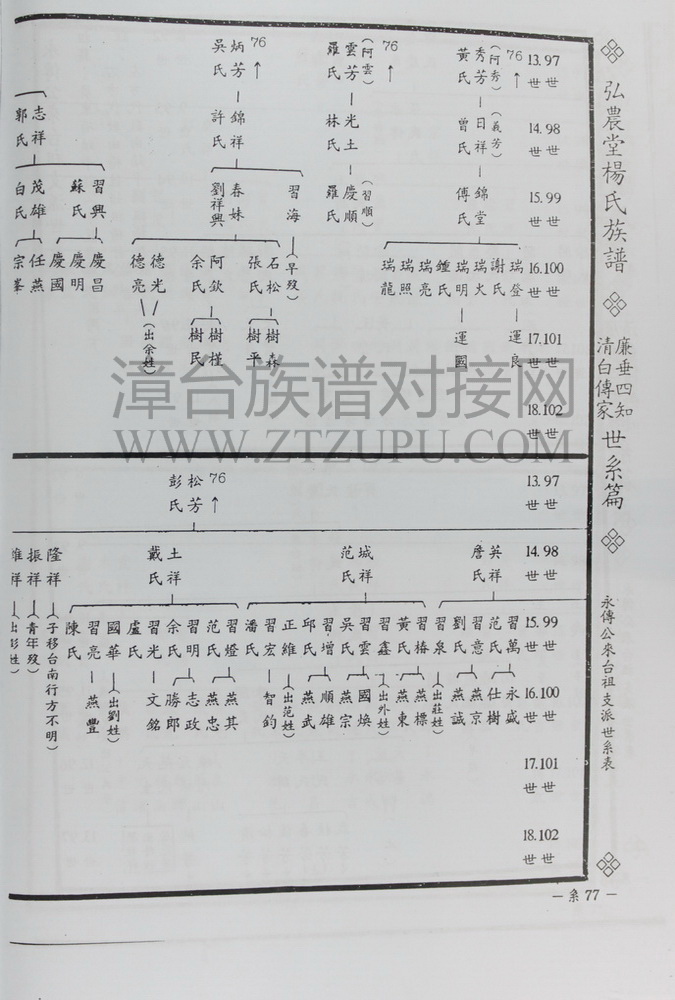 弘農堂楊氏族譜
廉垂四知
清白傳家
世系篇
永傳公來台祖支派世系表
13.97
世世
14.98
世世
15.99
世世
16.100
世世
17.101
世世
18.102
世世
76
(阿秀)
秀芳
黃氏
(義芳)
日祥
曾氏
錦堂
傅氏
瑞登
謝氏
瑞火
瑞明
鍾氏
瑞亮
瑞照
瑞龍
運良
運國
76
(阿雲)
雲芳
羅氏
光土
林氏
(習順)
慶順
羅氏
76
炳芳
吳氏
錦祥
許氏
習海
(早歿)
春妹
劉祥興
石松
張氏
阿欽
余氏
德光
德亮
(出余姓)
樹森
樹平
樹槿
樹民
志祥
郭氏
習興
蘇氏
茂雄
白氏
慶昌
慶明
慶國
任燕
宗峯
漳台族谱对接网
WWW.ZTZUPU.COM
13.97
世世
14.98
世世
15.99
世世
16.100
世世
17.101
世世
18.102
世世
76
松芳
彭氏
英祥
詹氏
城祥
范氏
土祥
戴氏
隆祥
(子移台南行方不明)
振祥
(青年歿)
習萬
范氏
習意
劉氏
習泉
(出莊姓)
習椿
黃氏
習鑫
(出外姓)
習雲
吳氏
習增
邱氏
正維
(出范姓)
習宏
潘氏
習燈
范氏
習明
余氏
習光
盧氏
國華
(出劉姓)
習亮
陳氏
永盛
仕樹
燕京
燕誠
燕標
燕東
國煥
燕宗
順雄
燕武
智鈞
燕其
燕忠
志政
勝郎
文銘
燕豐
— 系 77 —